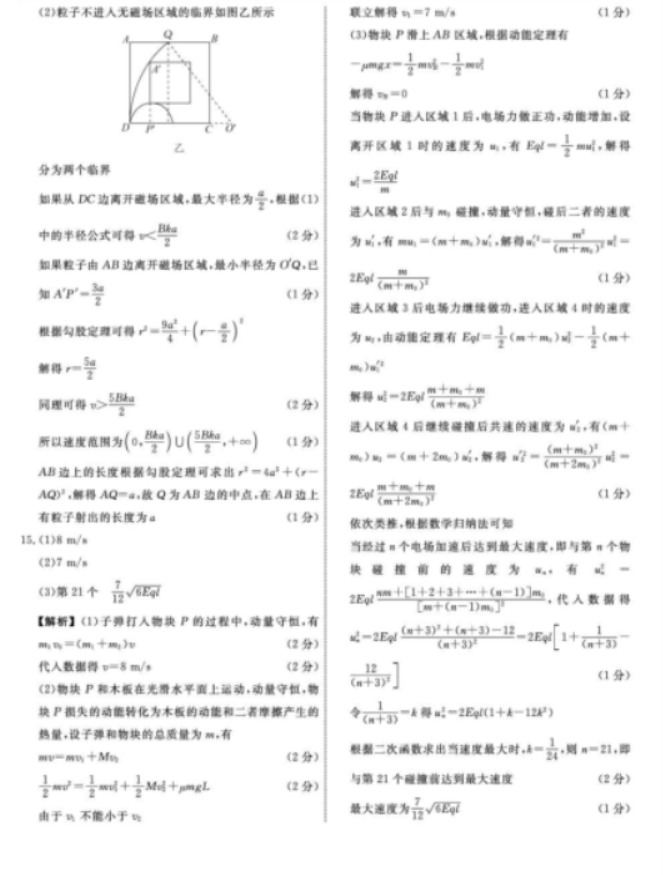 (2)粒子不进入无磁场区域的临界如图乙所示
A Q B
A′
D P′ C O′
乙
分为两个临界
如果从 DC 边离开磁场区域,最大半径为a/2,根据(1)
中的半径公式可得 v<Bka/2 (2分)
如果粒子由 AB 边离开磁场区域,最小半径为 O′Q,已
知 A′P′=3a/2 (1分)
根据勾股定理可得 r²=9a²/4+(r-a/2)²
解得 r=5a/2
同理可得 v>5Bka/2 (2分)
所以速度范围为(0,Bka/2)∪(5Bka/2,+∞) (1分)
AB 边上的长度根据勾股定理可求出 r²=4a²+(r-
AQ)²,解得 AQ=a,故 Q 为 AB 边的中点,在 AB 边上
有粒子射出的长度为 a (1分)
15.(1)8 m/s
(2)7 m/s
(3)第 21 个 7/12 √6Eql
【解析】(1)子弹打入物块 P 的过程中,动量守恒,有
m₁v₀=(m₁+m₂)v (2分)
代入数据得 v=8 m/s (2分)
(2)物块 P 和木板在光滑水平面上运动,动量守恒,物
块 P 损失的动能转化为木板的动能和二者摩擦产生的
热量,设子弹和物块的总质量为 m,有
mv=mv₁+Mv₂ (2分)
1/2 mv²=1/2 mv₁²+1/2 Mv₂²+μmgL (2分)
由于 v₁ 不能小于 v₂
联立解得 v₁=7 m/s (1分)
(3)物块 P 滑上 AB 区域,根据动能定理有
-μmgx=1/2 mv_B²-1/2 mv₁²
解得 v_B=0 (1分)
当物块 P 进入区域 1 后,电场力做正功,动能增加,设
离开区域 1 时的速度为 u₁,有 Eql=1/2 mu₁²,解得
u₁²=2Eql/m
进入区域 2 后与 m₀ 碰撞,动量守恒,碰后二者的速度
为 u₁′,有 mu₁=(m+m₀)u₁′,解得u₁′²=m²/(m+m₀)² u₁²=
2Eql m/(m+m₀)² (1分)
进入区域 3 后电场力继续做功,进入区域 4 时的速度
为 u₂,由动能定理有 Eql=1/2(m+m₀)u₂²-1/2(m+
m₀)u₁′²
解得 u₂²=2Eql (m+m₀+m)/(m+m₀)²
进入区域 4 后继续碰撞后共速的速度为 u₂′,有(m+
m₀)u₂=(m+2m₀)u₂′,解得 u₂′²=(m+m₀)²/(m+2m₀)² u₂²=
2Eql (m+m₀+m)/(m+2m₀)² (1分)
依次类推,根据数学归纳法可知
当经过 n 个电场加速后达到最大速度,即与第 n 个物
块碰撞前的速度为 uₙ,有 uₙ²=
2Eql (nm+[1+2+3+⋯+(n-1)]m₀)/[m+(n-1)m₀]²,代入数据得
uₙ²=2Eql ((n+3)²+(n+3)-12)/(n+3)²=2Eql[1+1/(n+3)-
12/(n+3)²] (1分)
令1/(n+3)=k 得 uₙ²=2Eql(1+k-12k²)
根据二次函数求出当速度最大时,k=1/24,则 n=21,即
与第 21 个碰撞前达到最大速度 (2分)
最大速度为7/12 √6Eql (1分)